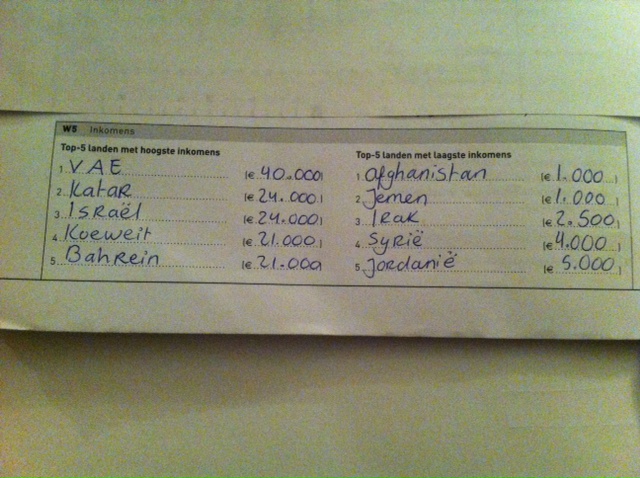 W5 Inkomens
Top-5 landen met hoogste inkomens
1. VAE (€ 40.000)
2. Katar (€ 24.000)
3. Israël (€ 24.000)
4. Koeweit (€ 21.000)
5. Bahrein (€ 21.000
Top-5 landen met laagste inkomens
1. afghanistan (€ 1.000)
2. Jemen (€ 1.000)
3. Irak (€ 2.500)
4. Syrië (€ 4.000)
5. Jordanië (€ 5.000)